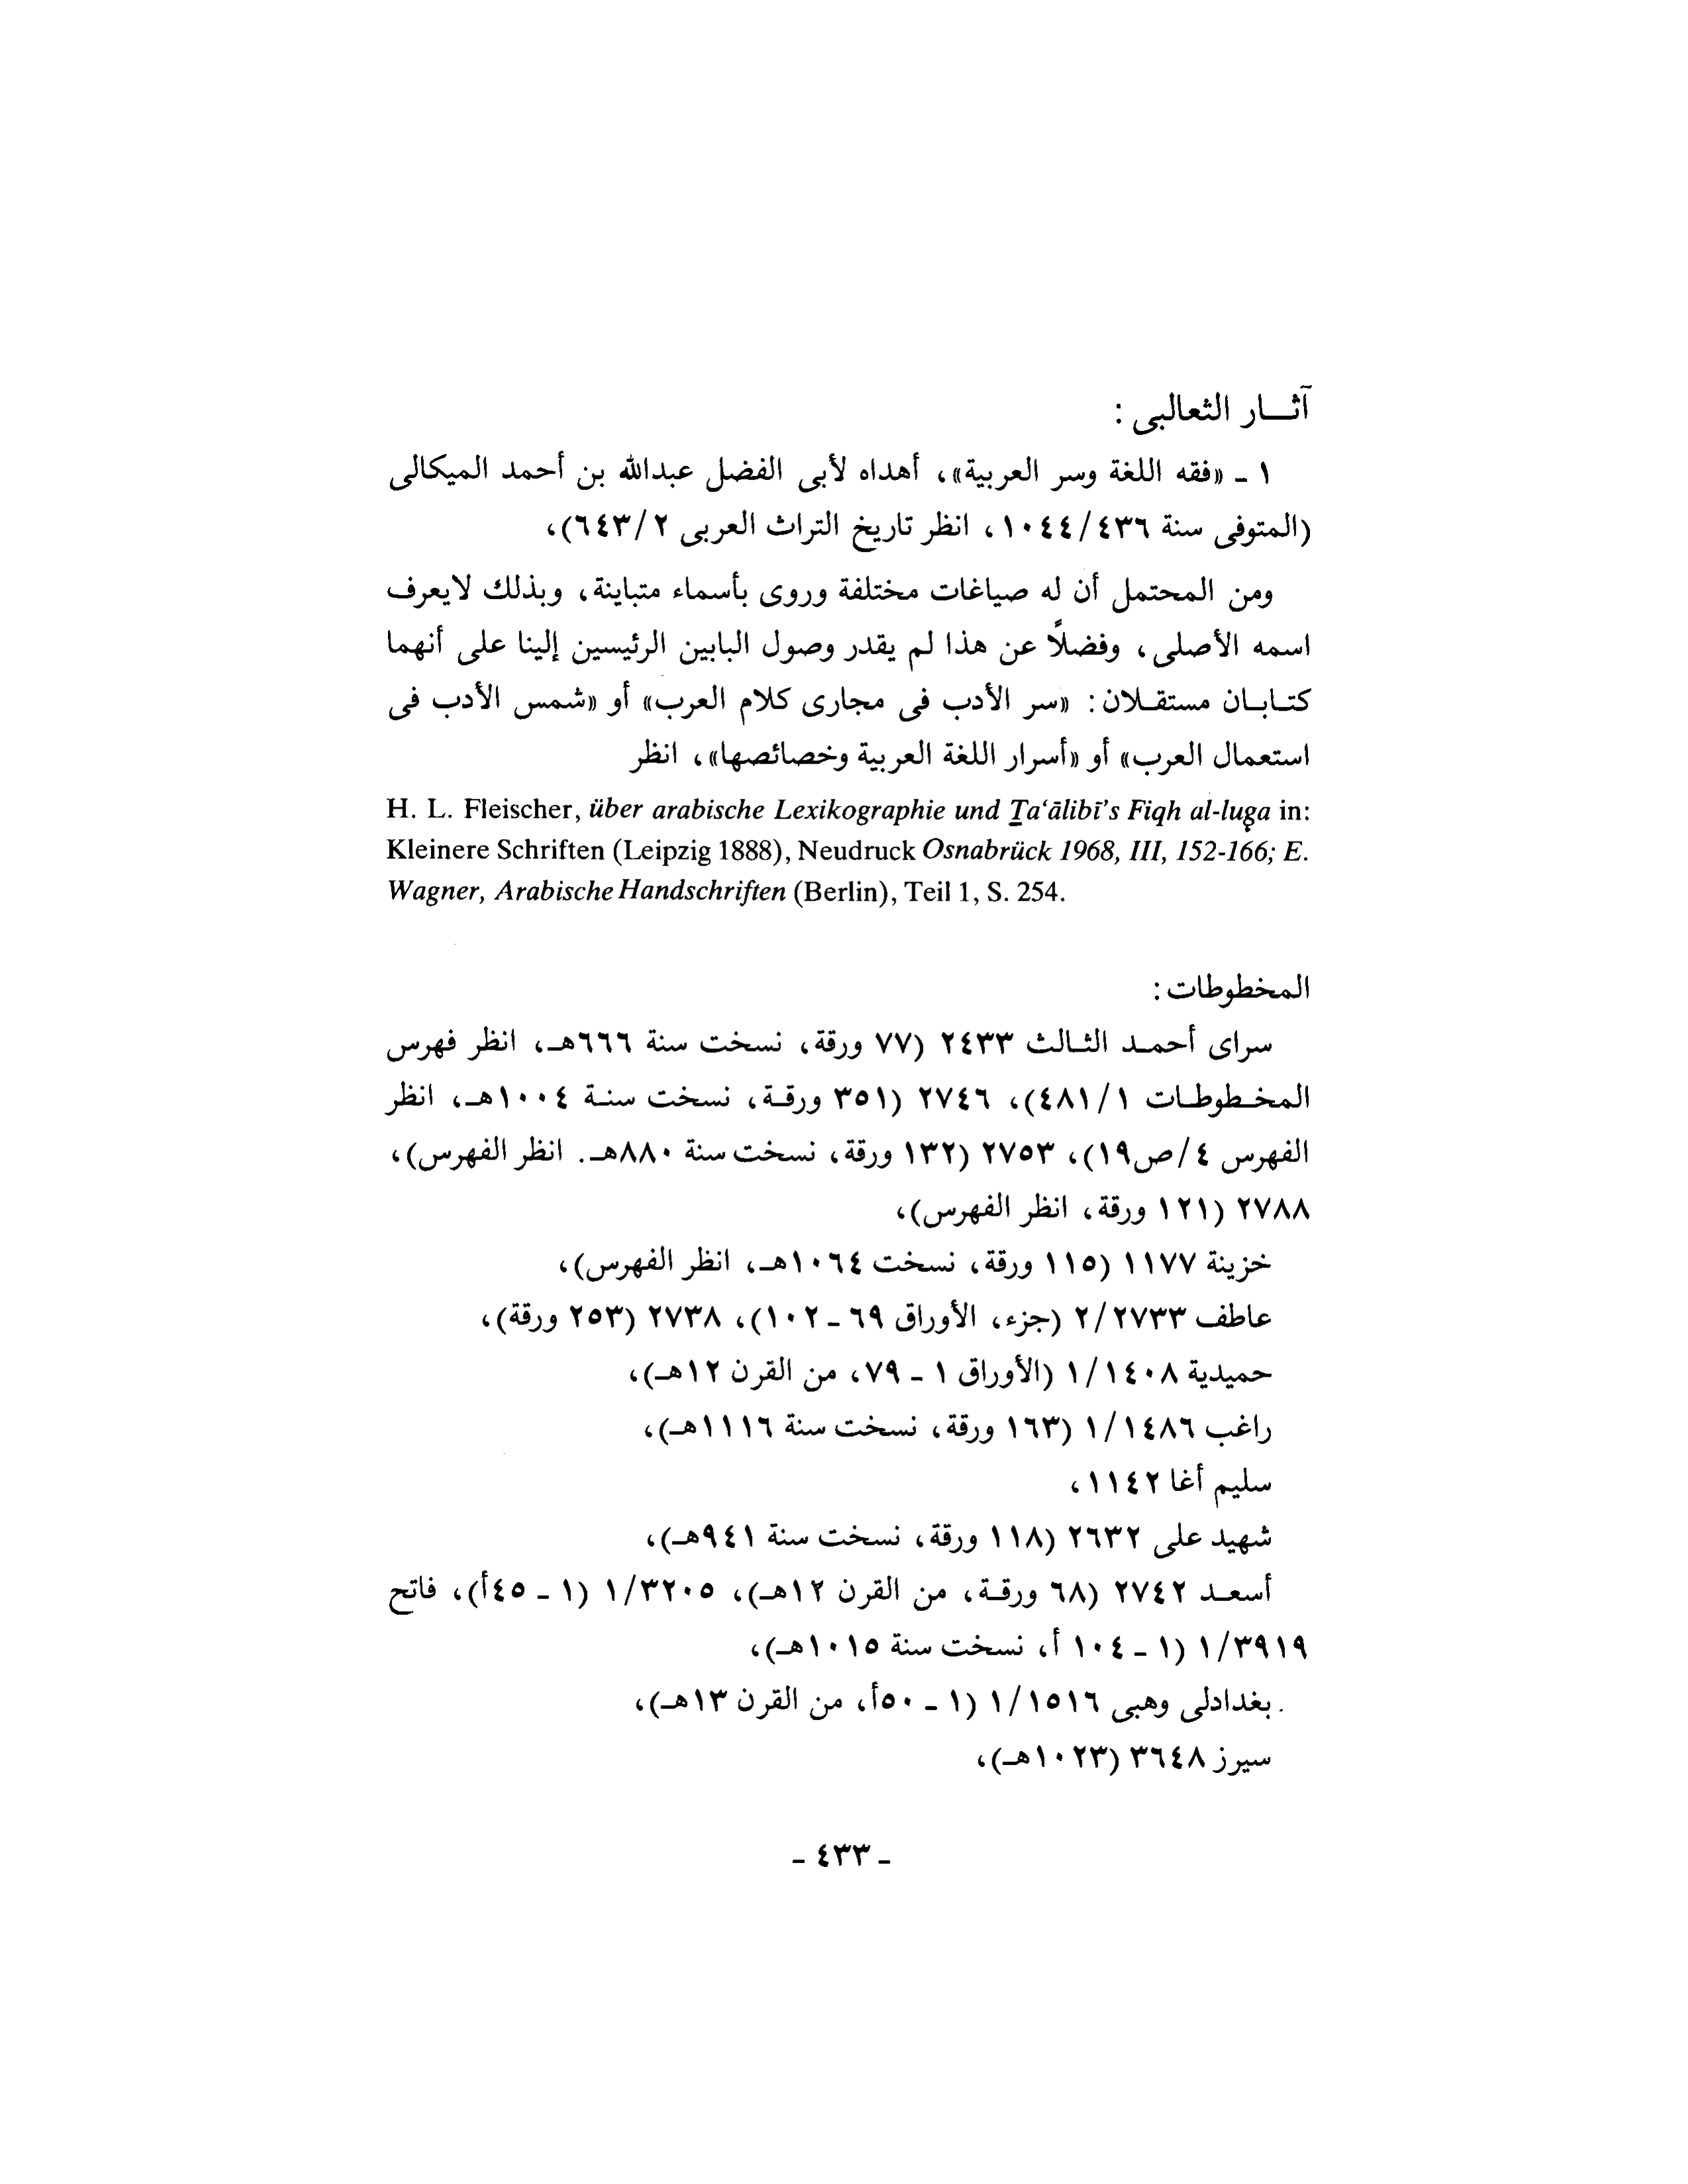 آثـــار الثعالبى :
١ ـ «فقه اللغة وسر العربية»، أهداه لأبى الفضل عبدالله بن أحمد الميكالى
(المتوفى سنة ٤٣٦/ ١٠٤٤، انظر تاريخ التراث العربى ٢ /٦٤٣)،
ومن المحتمل أن له صياغات مختلفة وروى بأسماء متباينة، وبذلك لايعرف
اسمه الأصلى، وفضلًا عن هذا لم يقدر وصول البابين الرئيسين إلينا على أنهما
كتـابـان مستقـلان: «سر الأدب فى مجارى كلام العرب» أو «شمس الأدب فى
استعمال العرب» أو «أسرار اللغة العربية وخصائصها»، انظر
H. L. Fleischer, über arabische Lexikographie und Ṯa‘ālibī’s Fiqh al-luġa in:
Kleinere Schriften (Leipzig 1888), Neudruck Osnabrück 1968, III, 152-166; E.
Wagner, Arabische Handschriften (Berlin), Teil 1, S. 254.
المخطوطات:
سراى أحمـد الثـالث ٢٤٣٣ (٧٧ ورقة، نسخت سنة ٦٦٦هـ، انظر فهرس
المخـطوطـات ١ /٤٨١)، ٢٧٤٦ (٣٥١ ورقـة، نسخت سنـة ١٠٠٤هـ، انظر
الفهرس ٤ /ص١٩)، ٢٧٥٣ (١٣٢ ورقة، نسخت سنة ٨٨٠هـ. انظر الفهرس)،
٢٧٨٨ (١٢١ ورقة، انظر الفهرس)،
خزينة ١١٧٧ (١١٥ ورقة، نسخت ١٠٦٤هـ، انظر الفهرس)،
عاطف ٢/٢٧٣٣ (جزء، الأوراق ٦٩ ـ ١٠٢)، ٢٧٣٨ (٢٥٣ ورقة)،
حميدية ١/١٤٠٨ (الأوراق ١ ـ ٧٩، من القرن ١٢هـ)،
راغب ١/١٤٨٦ (١٦٣ ورقة، نسخت سنة ١١١٦هـ)،
سليم أغا ١١٤٢،
شهيد على ٢٦٣٢ (١١٨ ورقة، نسخت سنة ٩٤١هـ)،
أسعـد ٢٧٤٢ (٦٨ ورقـة، من القرن ١٢هـ)، ١/٣٢٠٥ (١ ـ ٤٥أ)، فاتح
١/٣٩١٩ (١ ـ ١٠٤ أ، نسخت سنة ١٠١٥هـ)،
بغدادلى وهبى ١/١٥١٦ (١ ـ ٥٠أ، من القرن ١٣هـ)،
سيرز ٣٦٤٨ (١٠٢٣هـ)،
ـ ٤٣٣ ـ